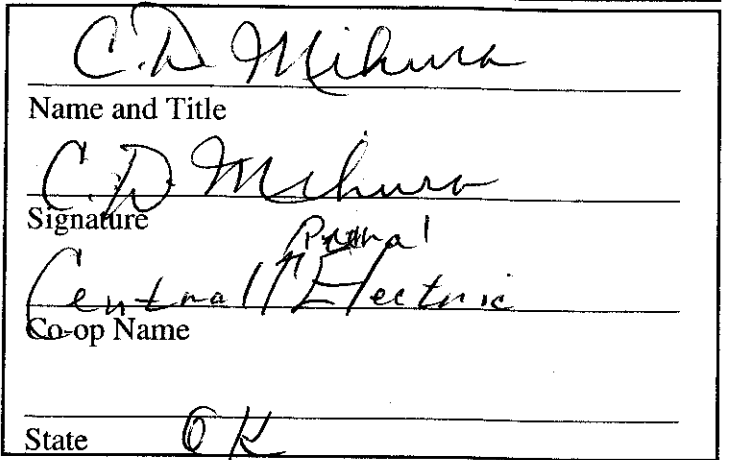 C.D. Mikura
Name and Title
C.D. Mikura
Signature
Rural
Central Electric
Co-op Name
State OK